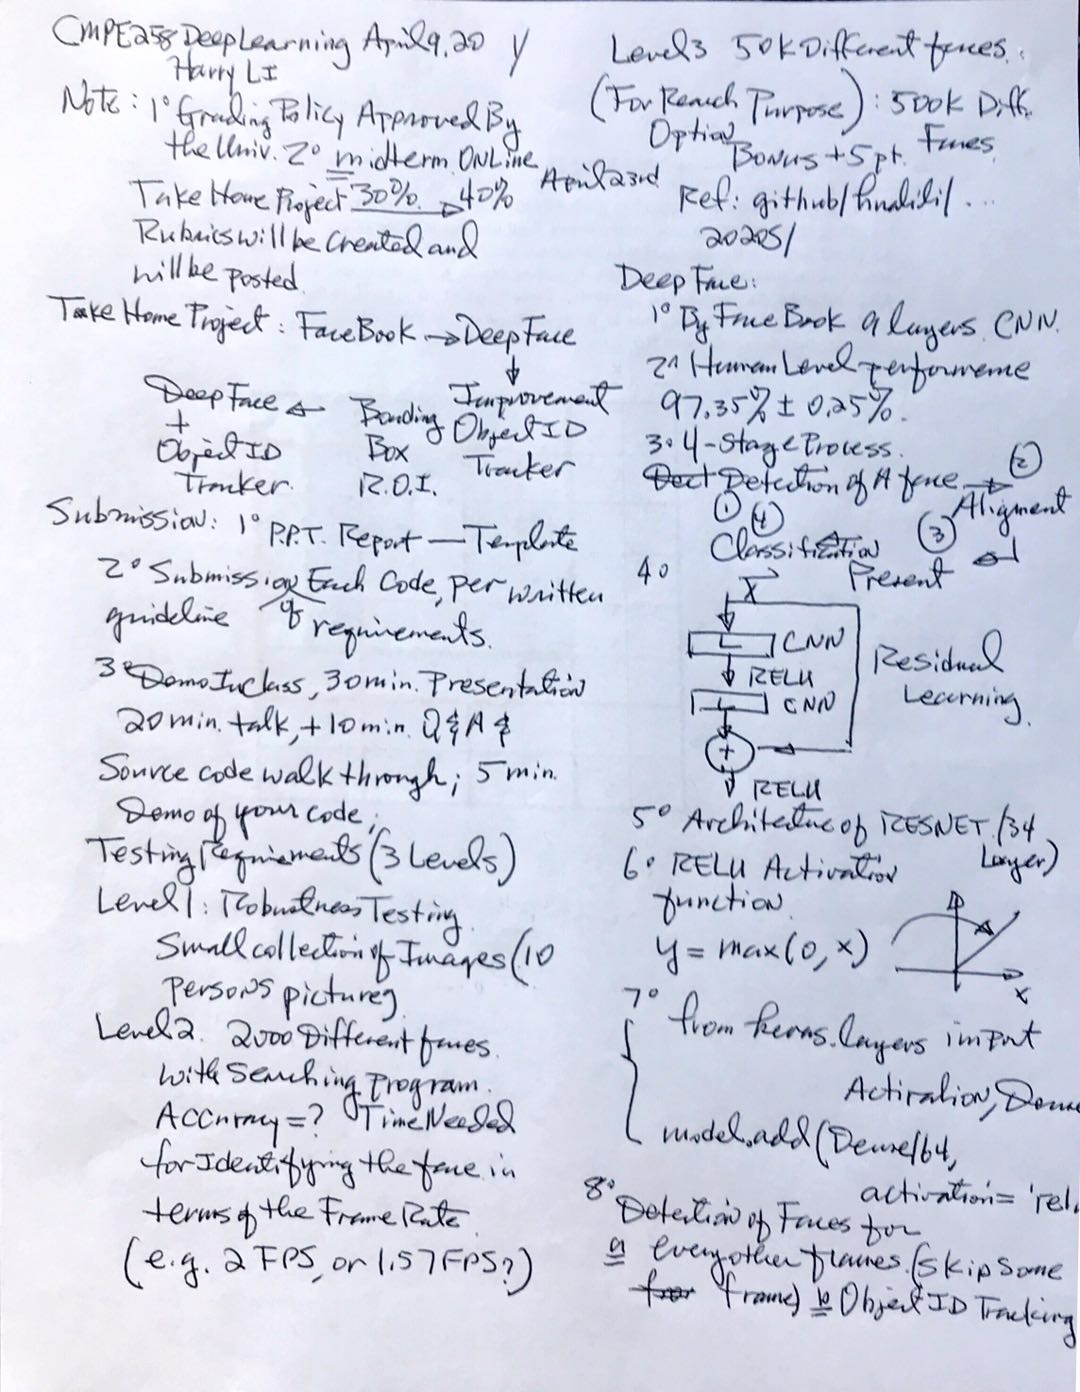 CMPE258 Deep Learning April 9, 20 y
Harry LI
Note: 1° Grading Policy Approved By
the Univ. 2° midterm ONLine
April 23rd
Take Home Project 30% → 40%
Rubrics will be created and
will be posted.
Take Home Project: FaceBook → DeepFace
↓
Improvement
Object ID
Tracker
Bonding
Box
R.O.I.
DeepFace ←
+
Object ID
Tracker.
Submission: 1° P.P.T. Report — Template
2° Submission of Each Code, per written
guideline requirements.
3° Demo In class, 30 min. Presentation
20 min. talk, + 10 min. Q & A &
Source code walk through; 5 min.
Demo of your code;
Testing Requiements (3 Levels)
Level 1: Robustness Testing
Small collection of Images (10
persons pictures)
Level 2. 2000 Different faces.
with Searching program.
Accuracy = ? Time Needed
for Identifying the face in
terms of the Frame Rate
(e.g. 2 FPS, or 1.57 FPS?)
Level 3 50K Different faces.
(For Reach Purpose): 500K Diff.
Option Faces
Bonus + 5 pt.
Ref: github/hualili/...
2020S/
Deep Face:
1° By FaceBook 9 layers CNN.
2° Human Level performance
97.35% ± 0.25%.
3° 4-Stage Process.
Detection of A face → ②
① Aligment
④ ③
Classification
Present
4°
X
CNN
RELU
CNN
+
RELU
Residual
Learning.
5° Architectue of RESNET (34
Layer)
6° RELU Activation
function
y = max(0, x)
x
7°
from keras.layers import
Activation, Dense
model.add(Dense(64,
activation= 'rel
8° Detection of Faces for
a every other frames. (skip some
frame) b Object ID Tracking